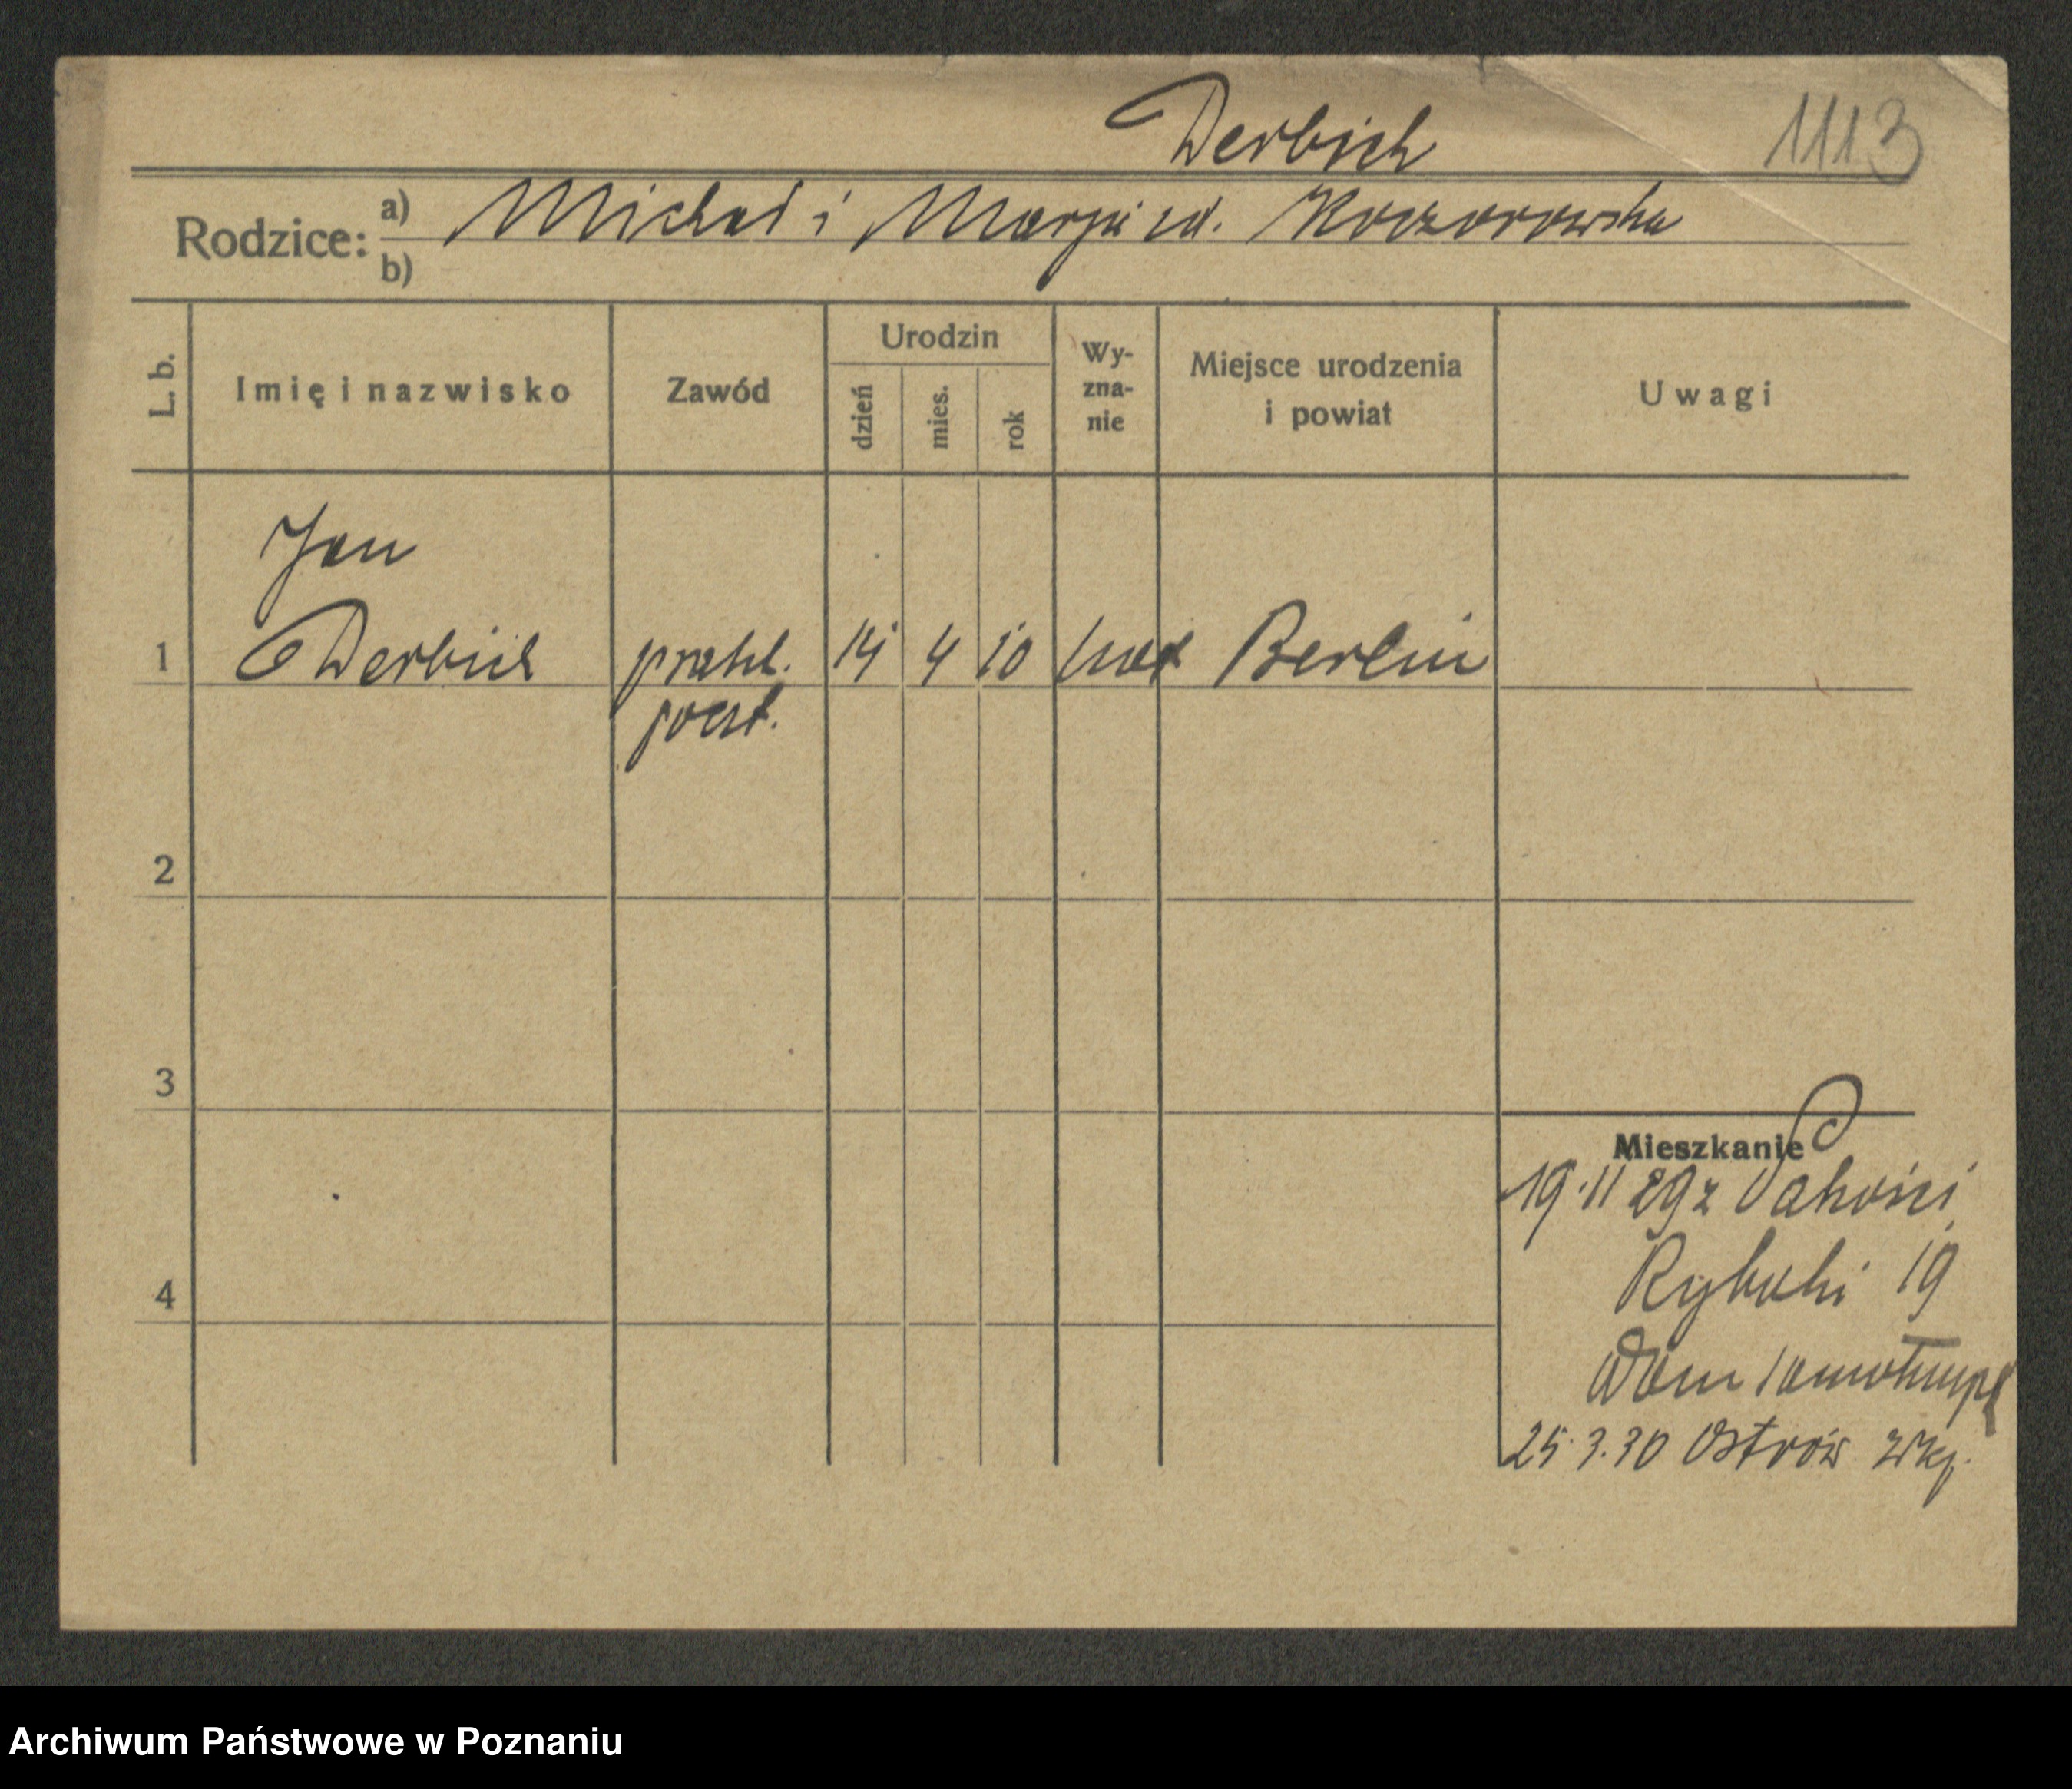 Derbich 1113
Rodzice: a) Michał i Marja zd. Koczorowska
b)
L. b. Imię i nazwisko Zawód Urodzin dzień mies. rok Wy-zna-nie Miejsce urodzenia i powiat Uwagi
Jan
1 Derbich prakt. 14 4 10 kat Berlin
poczt.
2
3
Mieszkanie
19.11 29 z Pakości
4 Rybaki 19
Dom
25.3.30 Ostrów Wlkp.
Archiwum Państwowe w Poznaniu